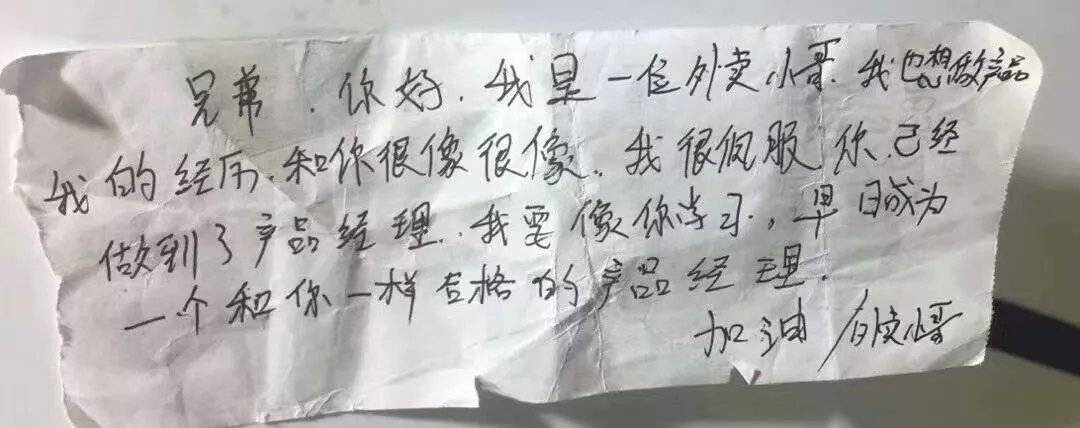 兄弟.你好.我是一位外卖小哥.我也想做产品
我的经历.和你很像很像.我很佩服你.已经
做到了产品经理.我要像你学习,早日成为
一个和你一样合格的产品经理.
加油 外卖小哥